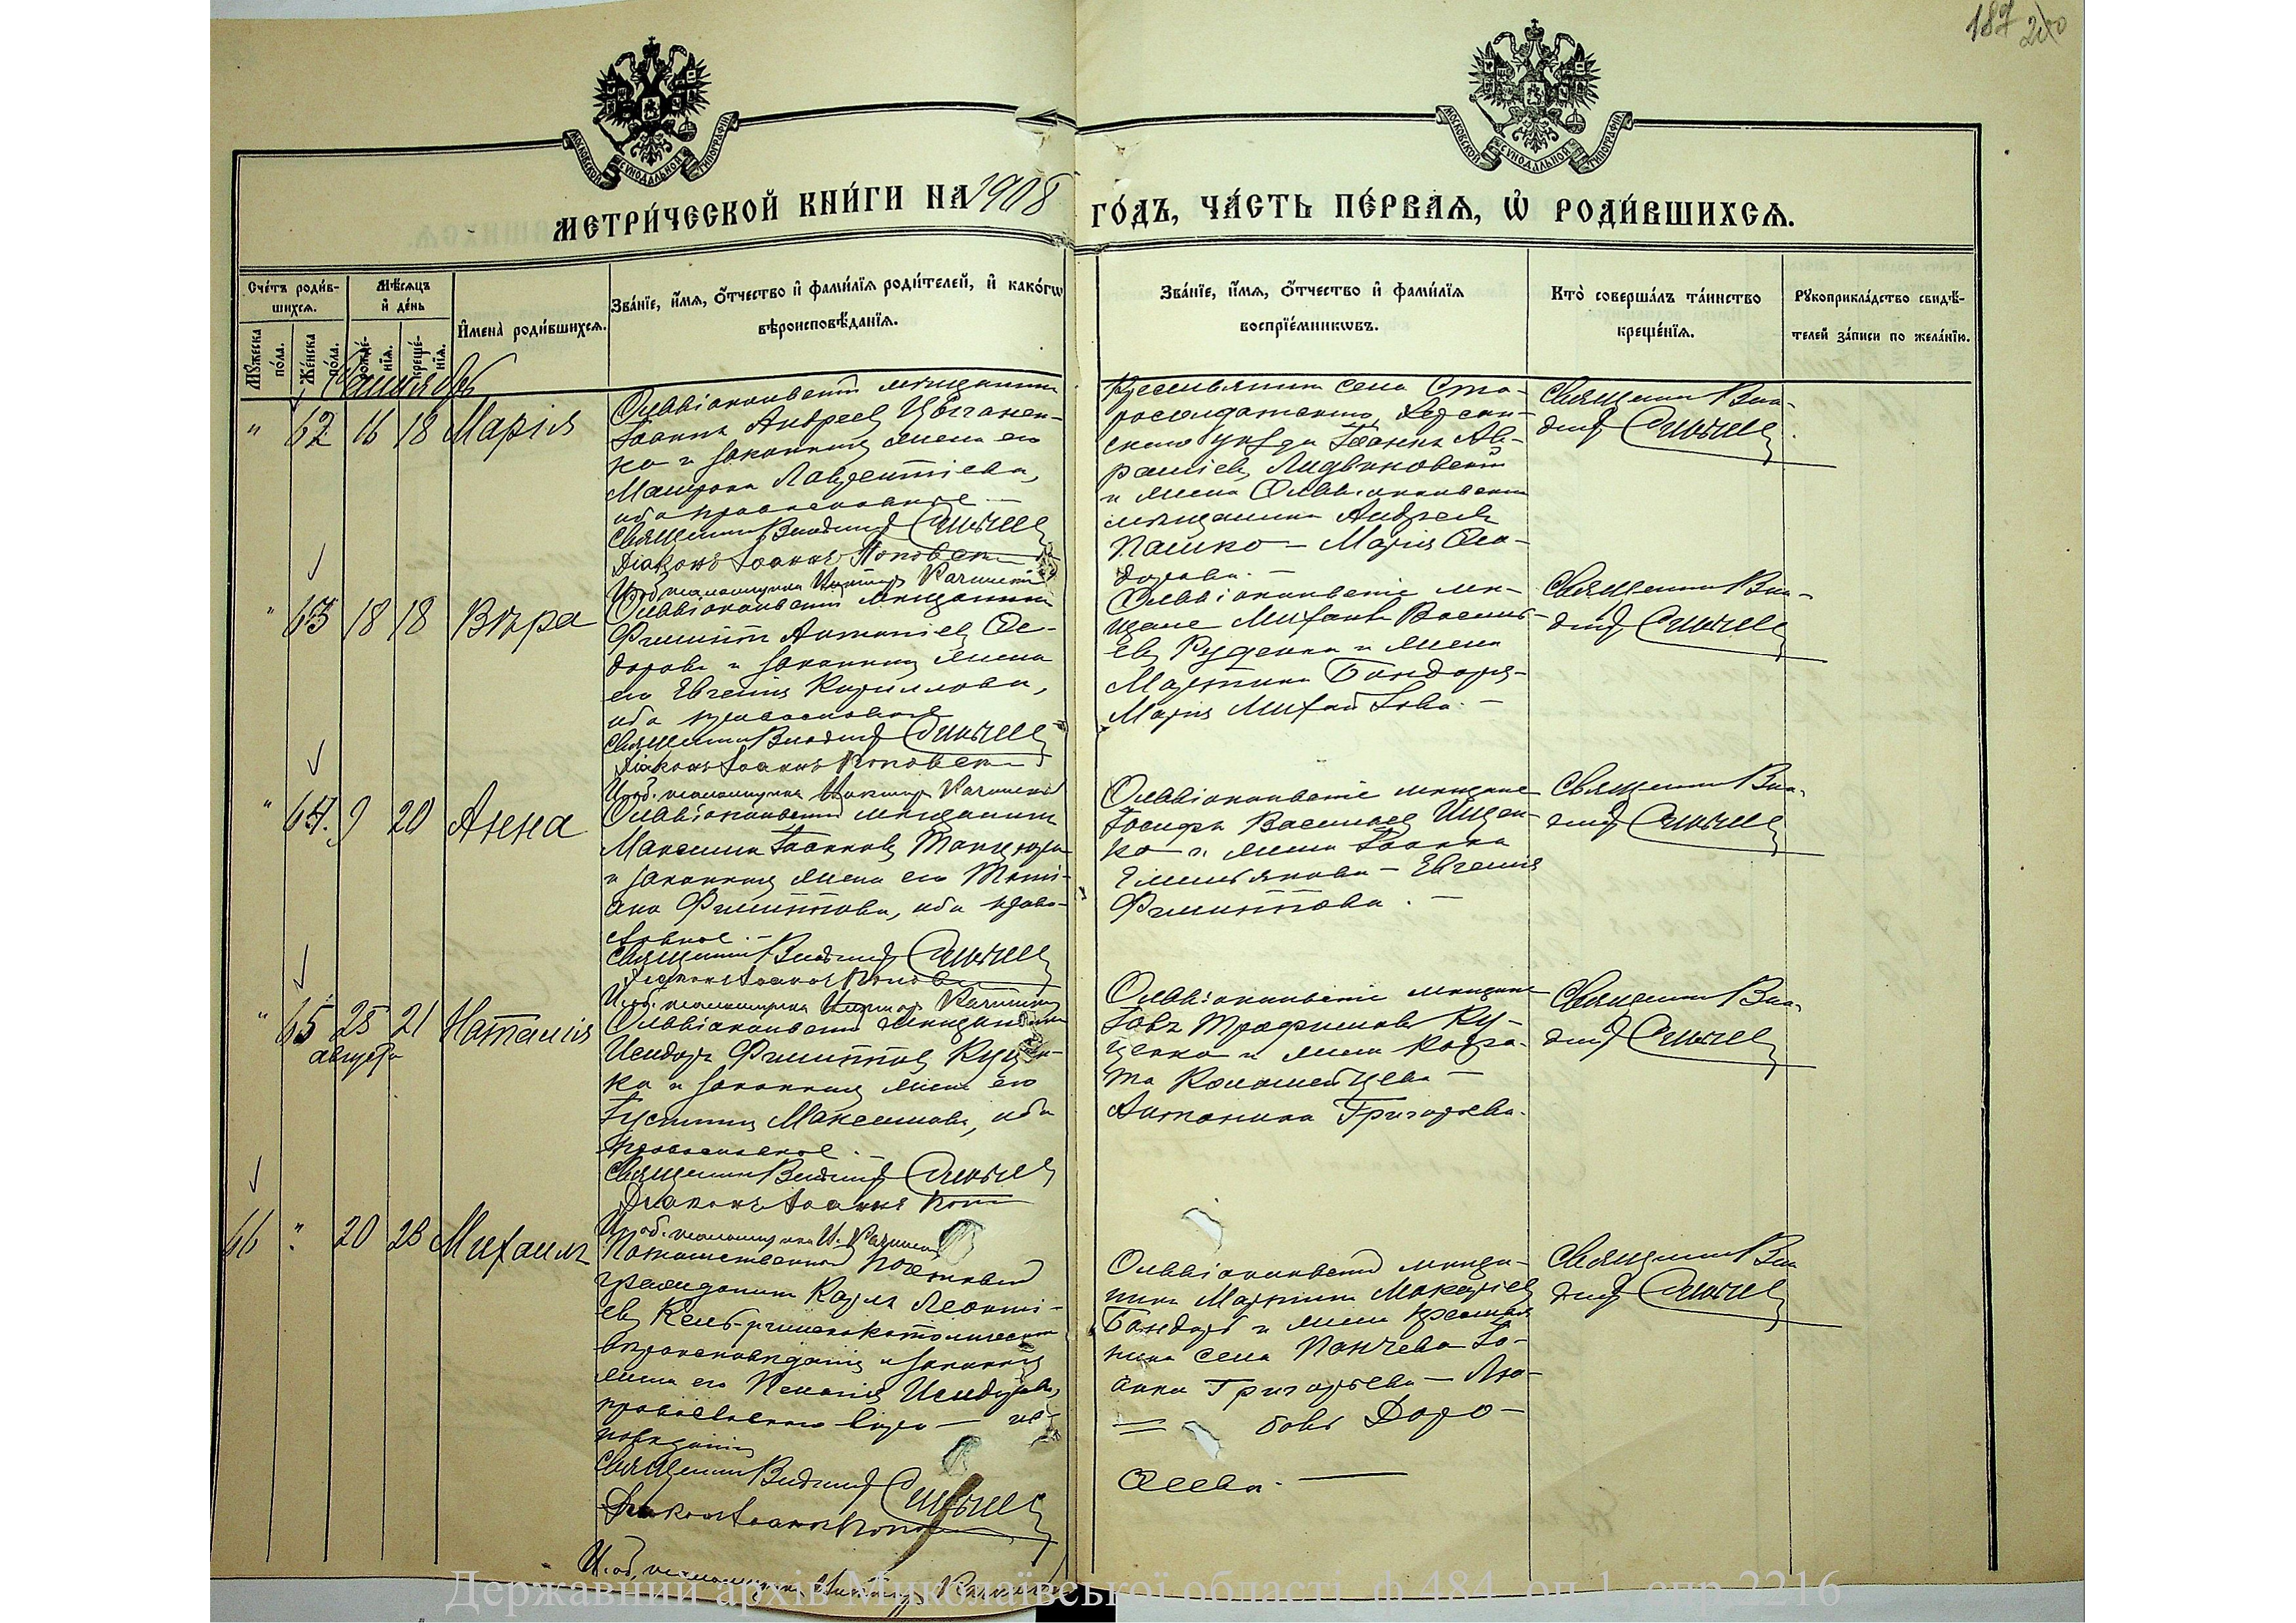 187 200
МОСКОВСКОЙ СѴНОДАЛЬНОЙ ТИПОГРАФІИ
МОСКОВСКОЙ СѴНОДАЛЬНОЙ ТИПОГРАФІИ
МЕТРИ́ЧЕСКОЙ КНИ́ГИ НА 1908 ГО́ДЪ, ЧА́СТЬ ПЕ́РВАѦ, Ѡ҆ РОДИ́ВШИХСѦ.
Сче́тъ роди́в-
шихсѧ.
Мꙋ́жеска по́ла.
Же́нска по́ла.
Мѣ́сѧцъ
и҆ де́нь
рожде́-
нїѧ.
креще́-
нїѧ.
И҆мена̀ роди́вшихсѧ.
Зва́нїе, и҆́мѧ, ѻ҆́тчество и҆ фами́лїѧ роди́телей, и҆ како́гѡ
вѣроисповѣ́данїѧ.
Зва́нїе, и҆́мѧ, ѻ҆́тчество и҆ фами́лїѧ
воспрїе́мникѡвъ.
Кто̀ соверша́лъ та́инство
креще́нїѧ.
Рꙋкоприкла́дство свидѣ́-
телей за́писи по жела́нїю.
Сентябрь
" 62 16 18 Марія
Ольвіопольскій мѣщанинъ
Іоаннъ Андреевъ Цыганен-
ко и законная жена его
Матрона Лаврентіева,
оба православные. —
Священникъ Владимір
Діаконъ Іоаннъ
И. об. псаломщика
Крестьянинъ села Ста-
Херсон-
скаго уѣзда Іоаннъ Ав-
рамiевъ
и жена Ольвіопольскаго
мѣщанина Андрея
Пашко — Марія Ѳео-
дорова. —
Священникъ Вла-
димір
" 63 18 18 Вѣра
Ольвіопольскій мѣщанинъ
Филиппъ Антоніевъ Ѳе-
доровъ и законная жена
его Евгенія Кириллова,
оба православные
Священникъ Владимір
Діаконъ Іоаннъ
И. об. псаломщика
Ольвіопольскіе мѣ-
щане Михаилъ Василь-
евъ Руденко и жена
Мартина Бондаря —
Марія Михайлова. —
Священникъ Вла-
димір
" 64. 9 20 Анна
Ольвіопольскій мѣщанинъ
Максимъ Іоанновъ
и законная жена его Тати-
ана Филиппова, оба право-
славные. —
Священникъ Владимір
Діаконъ Іоаннъ
И. об. псаломщика
Ольвіопольскіе мѣщане
Іосифъ Васильевъ Ищен-
ко и жена Іоанна
Емельянова — Евгенія
Филиппова. —
Священникъ Вла-
димір
" 65 25 21 Наталія
августа
Ольвіопольскій мѣщанинъ
Исидоръ Филипповъ Куцен-
ко и законная жена его
Іустина Максимова, оба
православные. —
Священникъ Владимір
Діаконъ Іоаннъ
И. об. псаломщика
Ольвіопольскіе мѣщане
Іовъ Трофимовъ Ку-
ценко и жена Кодра-
та Коломейцева —
Антонина Григорьева.
Священникъ Вла-
димір
66 " 20 23 Михаилъ
Потомственный почетный
гражданинъ Карлъ Леонті-
евъ римско католическаго
вѣроисповѣданія и законная
жена его Пелагія Исидорова,
православнаго вѣро — ис-
повѣданія
Священникъ Владимір
Діаконъ Іоаннъ
И. об. псаломщика
Ольвіопольскій мѣща-
нинъ Мартинъ Макаріевъ
Бондарь и жена крестья-
нина села Панчева Іо-
анна Григорьева — Лю-
бовь Доро-
ѳеева. —
Священникъ Вла-
димір
Державний архів Миколаївської області, ф.484, оп.1, спр.2216